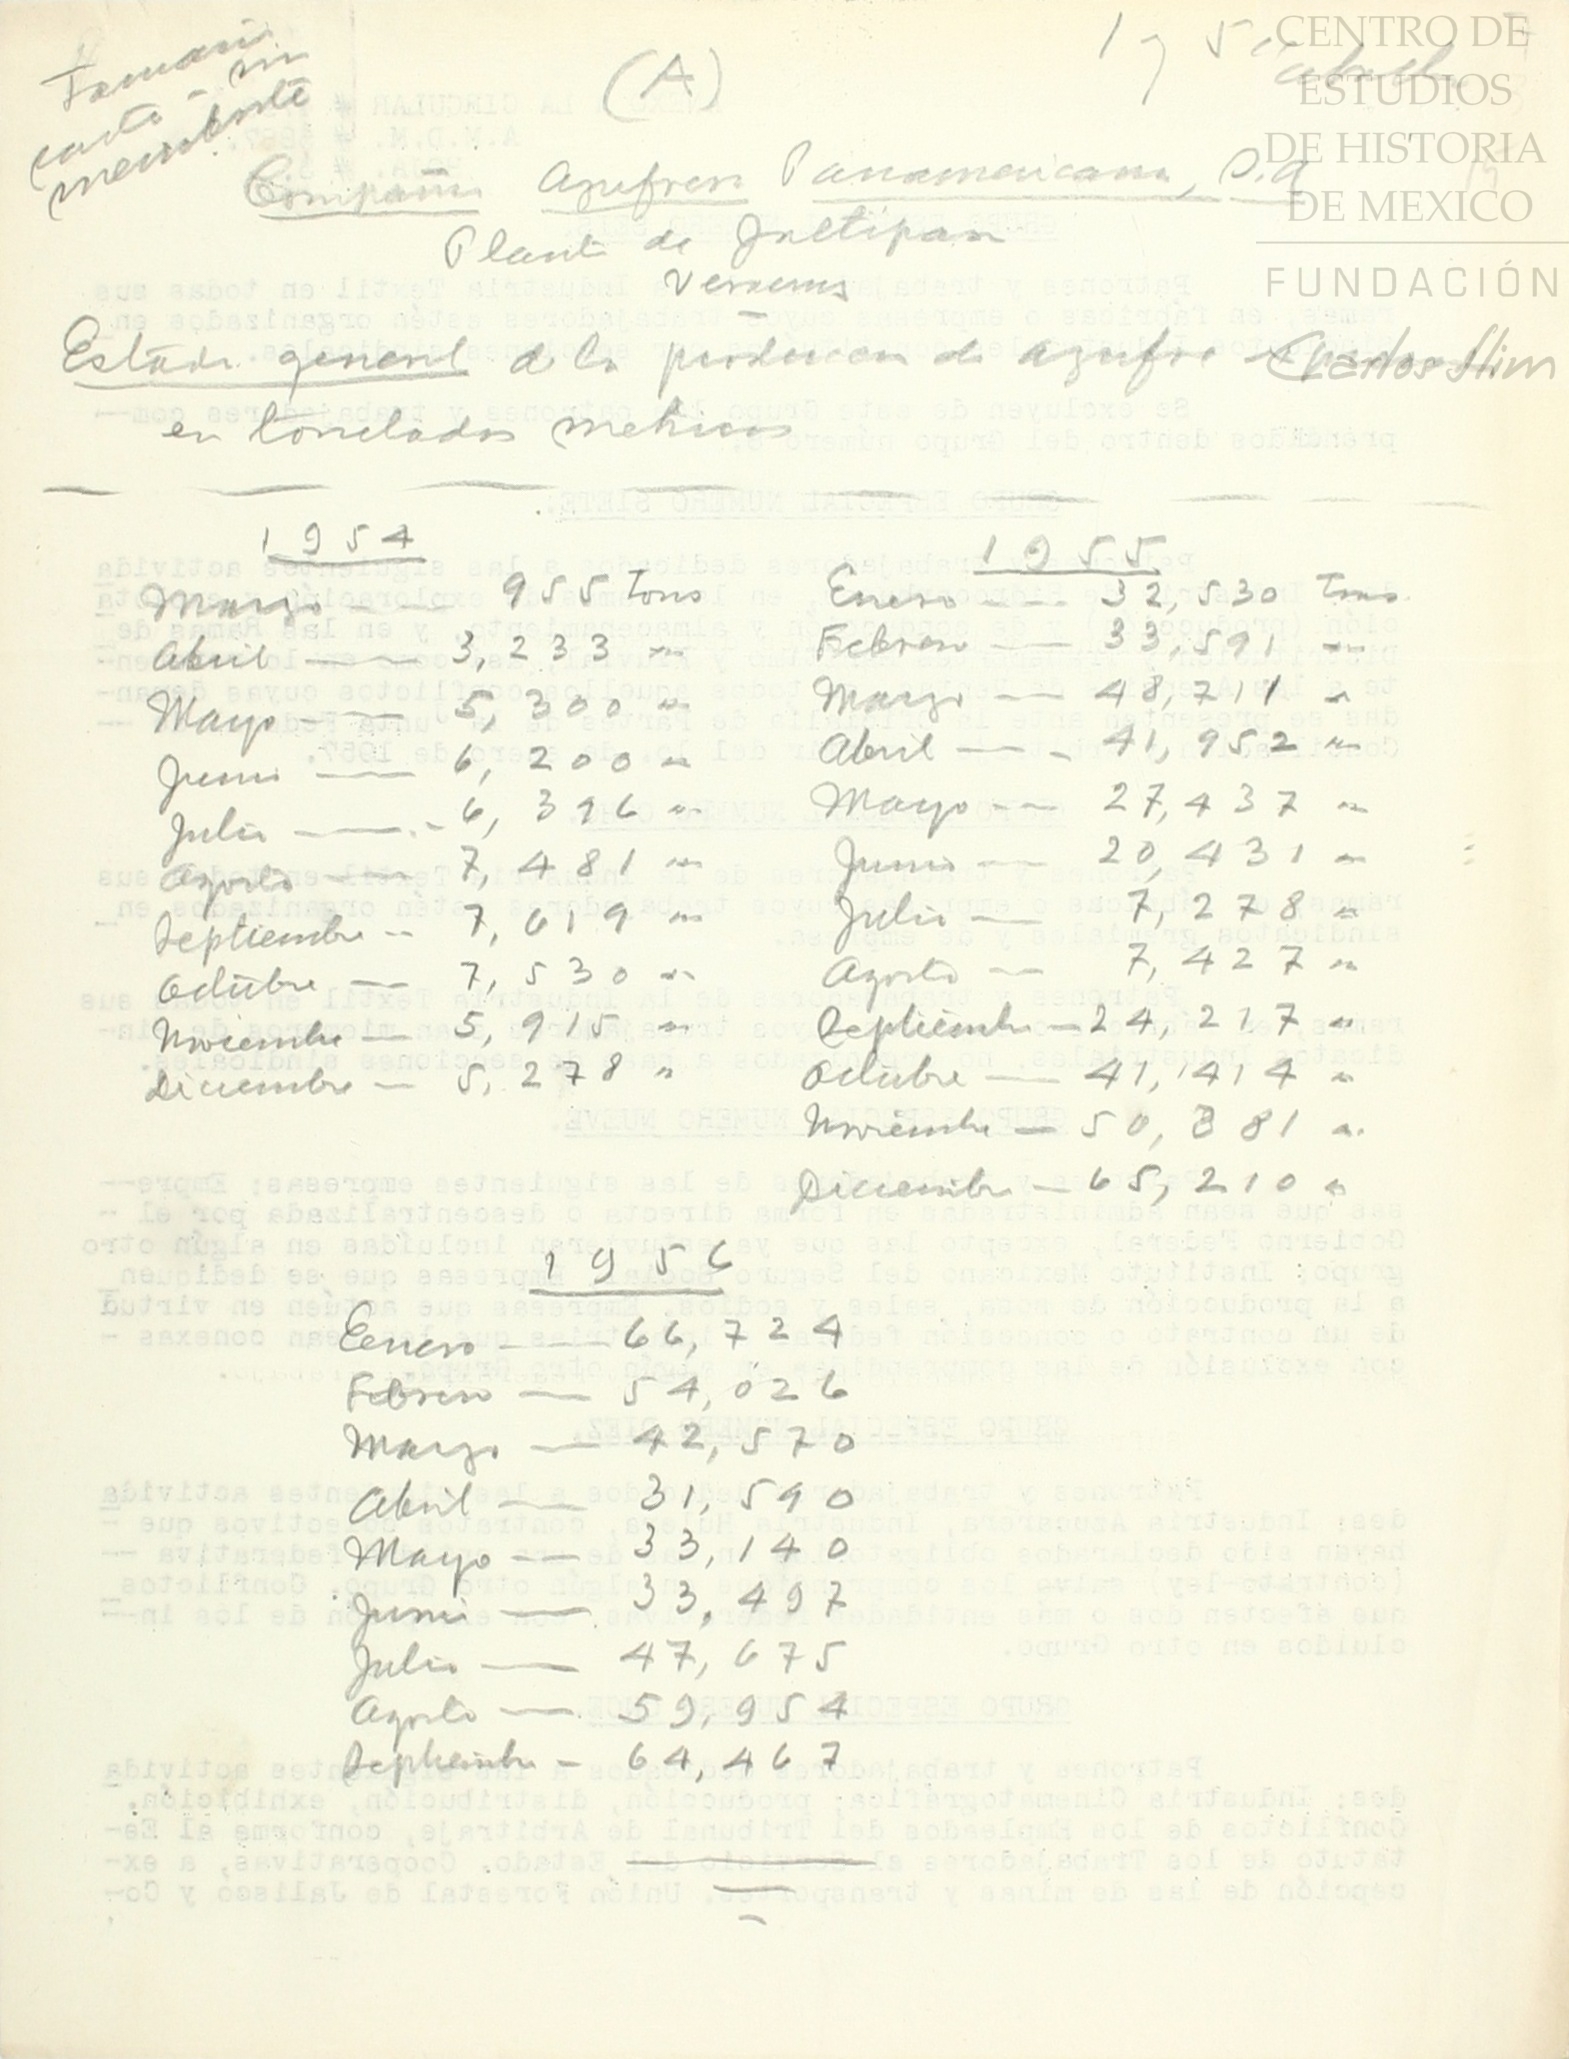 Tamaño
carta - sin
membrete
(A)
1 y 5
Compañia Azufrera Panamericana, S.A
Planta de Jaltipan
Veracruz
Estado general de la produccion de azufre
en toneladas metricas
CENTRO DE
ESTUDIOS
DE HISTORIA
DE MEXICO
FUNDACIÓN
Carlos Slim
1954
Marzo — 955 Tons
Abril — 3,233 "
Mayo — 5,300 "
Junio — 6,200 "
Julio — 6,396 "
Agosto — 7,481 "
Septiembre -- 7,619 "
Octubre — 7,530 "
Noviembre — 5,915 "
Diciembre — 5,278 "
1955
Enero — 32,530 Tons
Febrero — 33,591 "
Marzo — 48,711 "
Abril — 41,952 "
Mayo — 27,437 "
Junio — 20,431 "
Julio — 7,278 "
Agosto — 7,427 "
Septiembre — 24,217 "
Octubre — 41,414 "
Noviembre — 50,381 "
Diciembre — 65,210 "
1956
Enero — 66,724
Febrero — 54,026
Marzo — 42,570
Abril — 31,590
Mayo — 33,140
Junio — 33,497
Julio — 47,675
Agosto — 59,954
Septiembre — 64,467